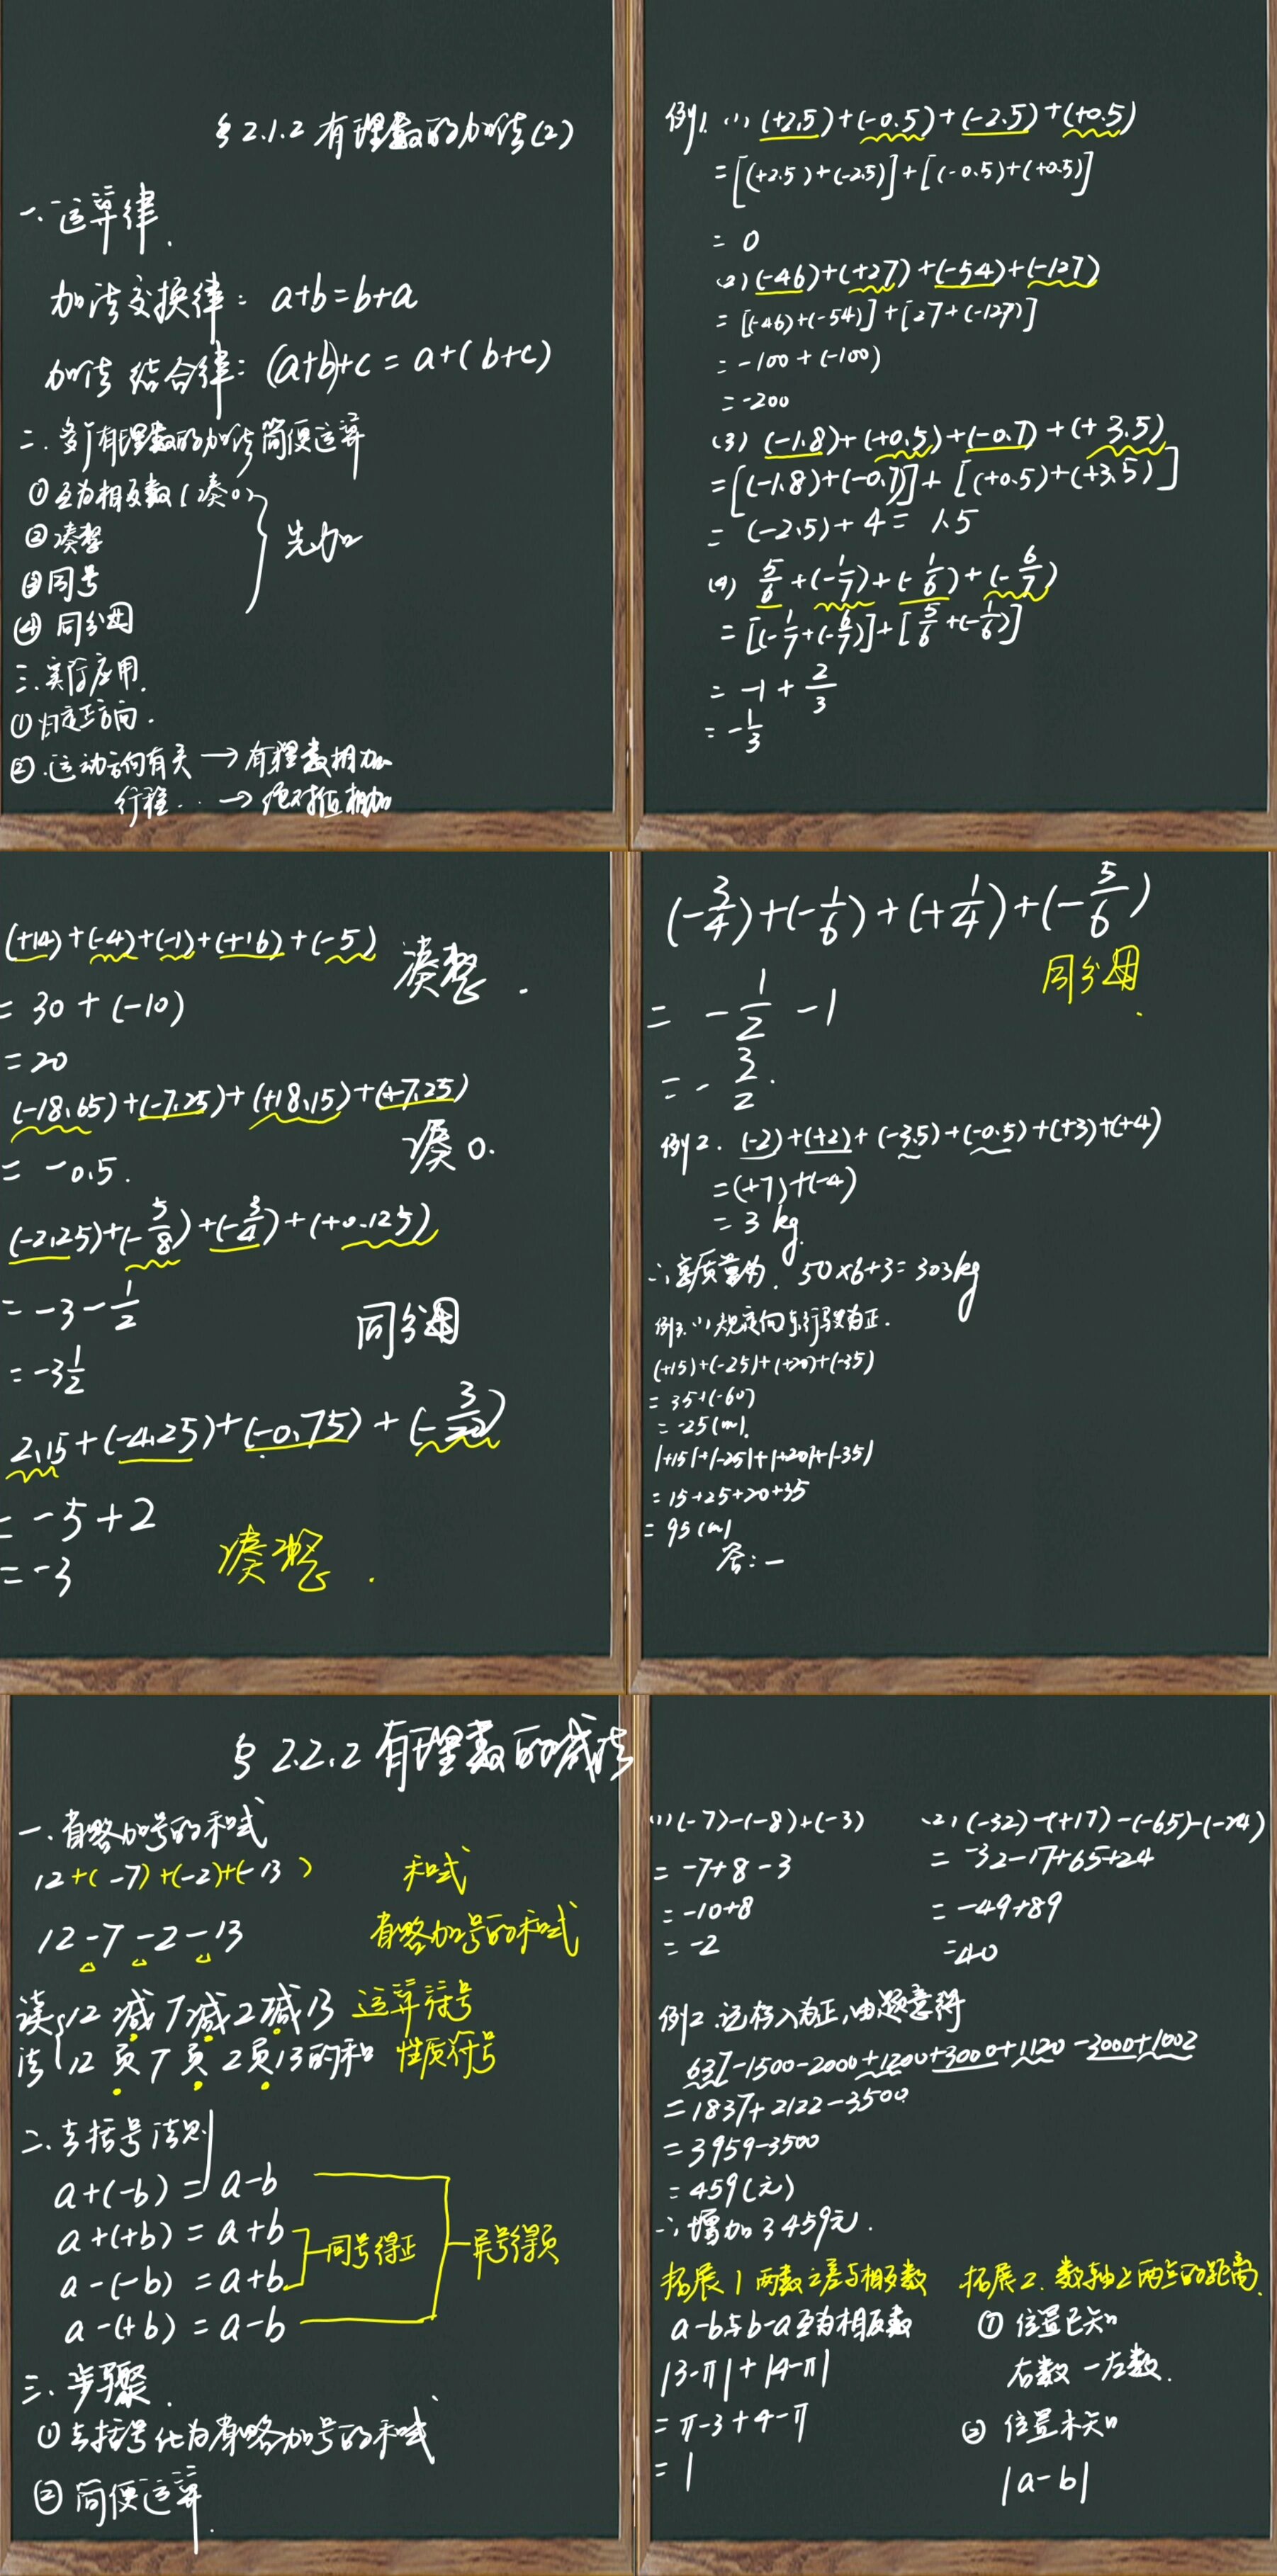 §2.1.2 有理数的加法(2)
一.运算律.
加法交换律: a+b=b+a
加法结合律: (a+b)+c=a+(b+c)
二.多个有理数的加法简便运算
①互为相反数(凑0)
②凑整
③同号
④同分母
先加
三.实际应用.
①规定正方向.
②.运动方向有关→有理数相加
行程...→绝对值相加
例1.(1)(+2.5)+(-0.5)+(-2.5)+(+0.5)
=[(+2.5)+(-2.5)]+[(-0.5)+(+0.5)]
=0
(2)(-46)+(+27)+(-54)+(-127)
=[(-46)+(-54)]+[27+(-127)]
=-100+(-100)
=-200
(3)(-1.8)+(+0.5)+(-0.7)+(+3.5)
=[(-1.8)+(-0.7)]+[(+0.5)+(+3.5)]
=(-2.5)+4=1.5
(4) 5/6+(-1/7)+(-1/6)+(-6/7)
=[(-1/7+(-6/7)]+[5/6+(-1/6)]
=-1+2/3
=-1/3
(+14)+(-4)+(-1)+(+16)+(-5) 凑整.
=30+(-10)
=20
(-18.65)+(-7.25)+(+18.15)+(+7.25)
凑0.
=-0.5.
(-2.25)+(-5/8)+(-3/4)+(+0.125)
=-3-1/2
同分母
=-3 1/2
2.15+(-4.25)+(-0.75)+(-3/20)
=-5+2
=-3 凑整.
(-3/4)+(-1/6)+(+1/4)+(-5/6)
同分母.
=-1/2-1
=-3/2.
例2.(-2)+(+2)+(-3.5)+(-0.5)+(+3)+(+4)
=(+7)+(-4)
=3kg.
∴总质量为.50×6+3=303kg
例3.(1)规定向东行驶为正.
(+15)+(-25)+(+20)+(-35)
=35+(-60)
=-25(m).
|+15|+|-25|+|+20|+|-35|
=15+25+20+35
=95(m)
答:—
§2.2.2 有理数的减法
一.省略加号的和式
12+(-7)+(-2)+(-13) 和式
12-7-2-13 省略加号的和式
读法{12减7减2减13 运算符号
12负7负2负13的和 性质符号
二.去括号法则
a+(-b)=a-b
a+(+b)=a+b
a-(-b)=a+b
a-(+b)=a-b
同号得正
异号得负
三.步骤.
①去括号化为省略加号的和式
②简便运算.
(1)(-7)-(-8)+(-3)
=-7+8-3
=-10+8
=-2
(2)(-32)-(+17)-(-65)-(-24)
=-32-17+65+24
=-49+89
=40
例2.记存入为正,由题意得
637-1500-2000+1200+3000+1120-3000+1002
=1837+2122-3500
=3959-3500
=459(元)
∴增加了459元.
拓展1 两数之差与相反数
a-b与b-a互为相反数
|3-π|+|4-π|
=π-3+4-π
=1
拓展2.数轴上两点的距离.
①位置已知
右数-左数.
②位置未知
|a-b|